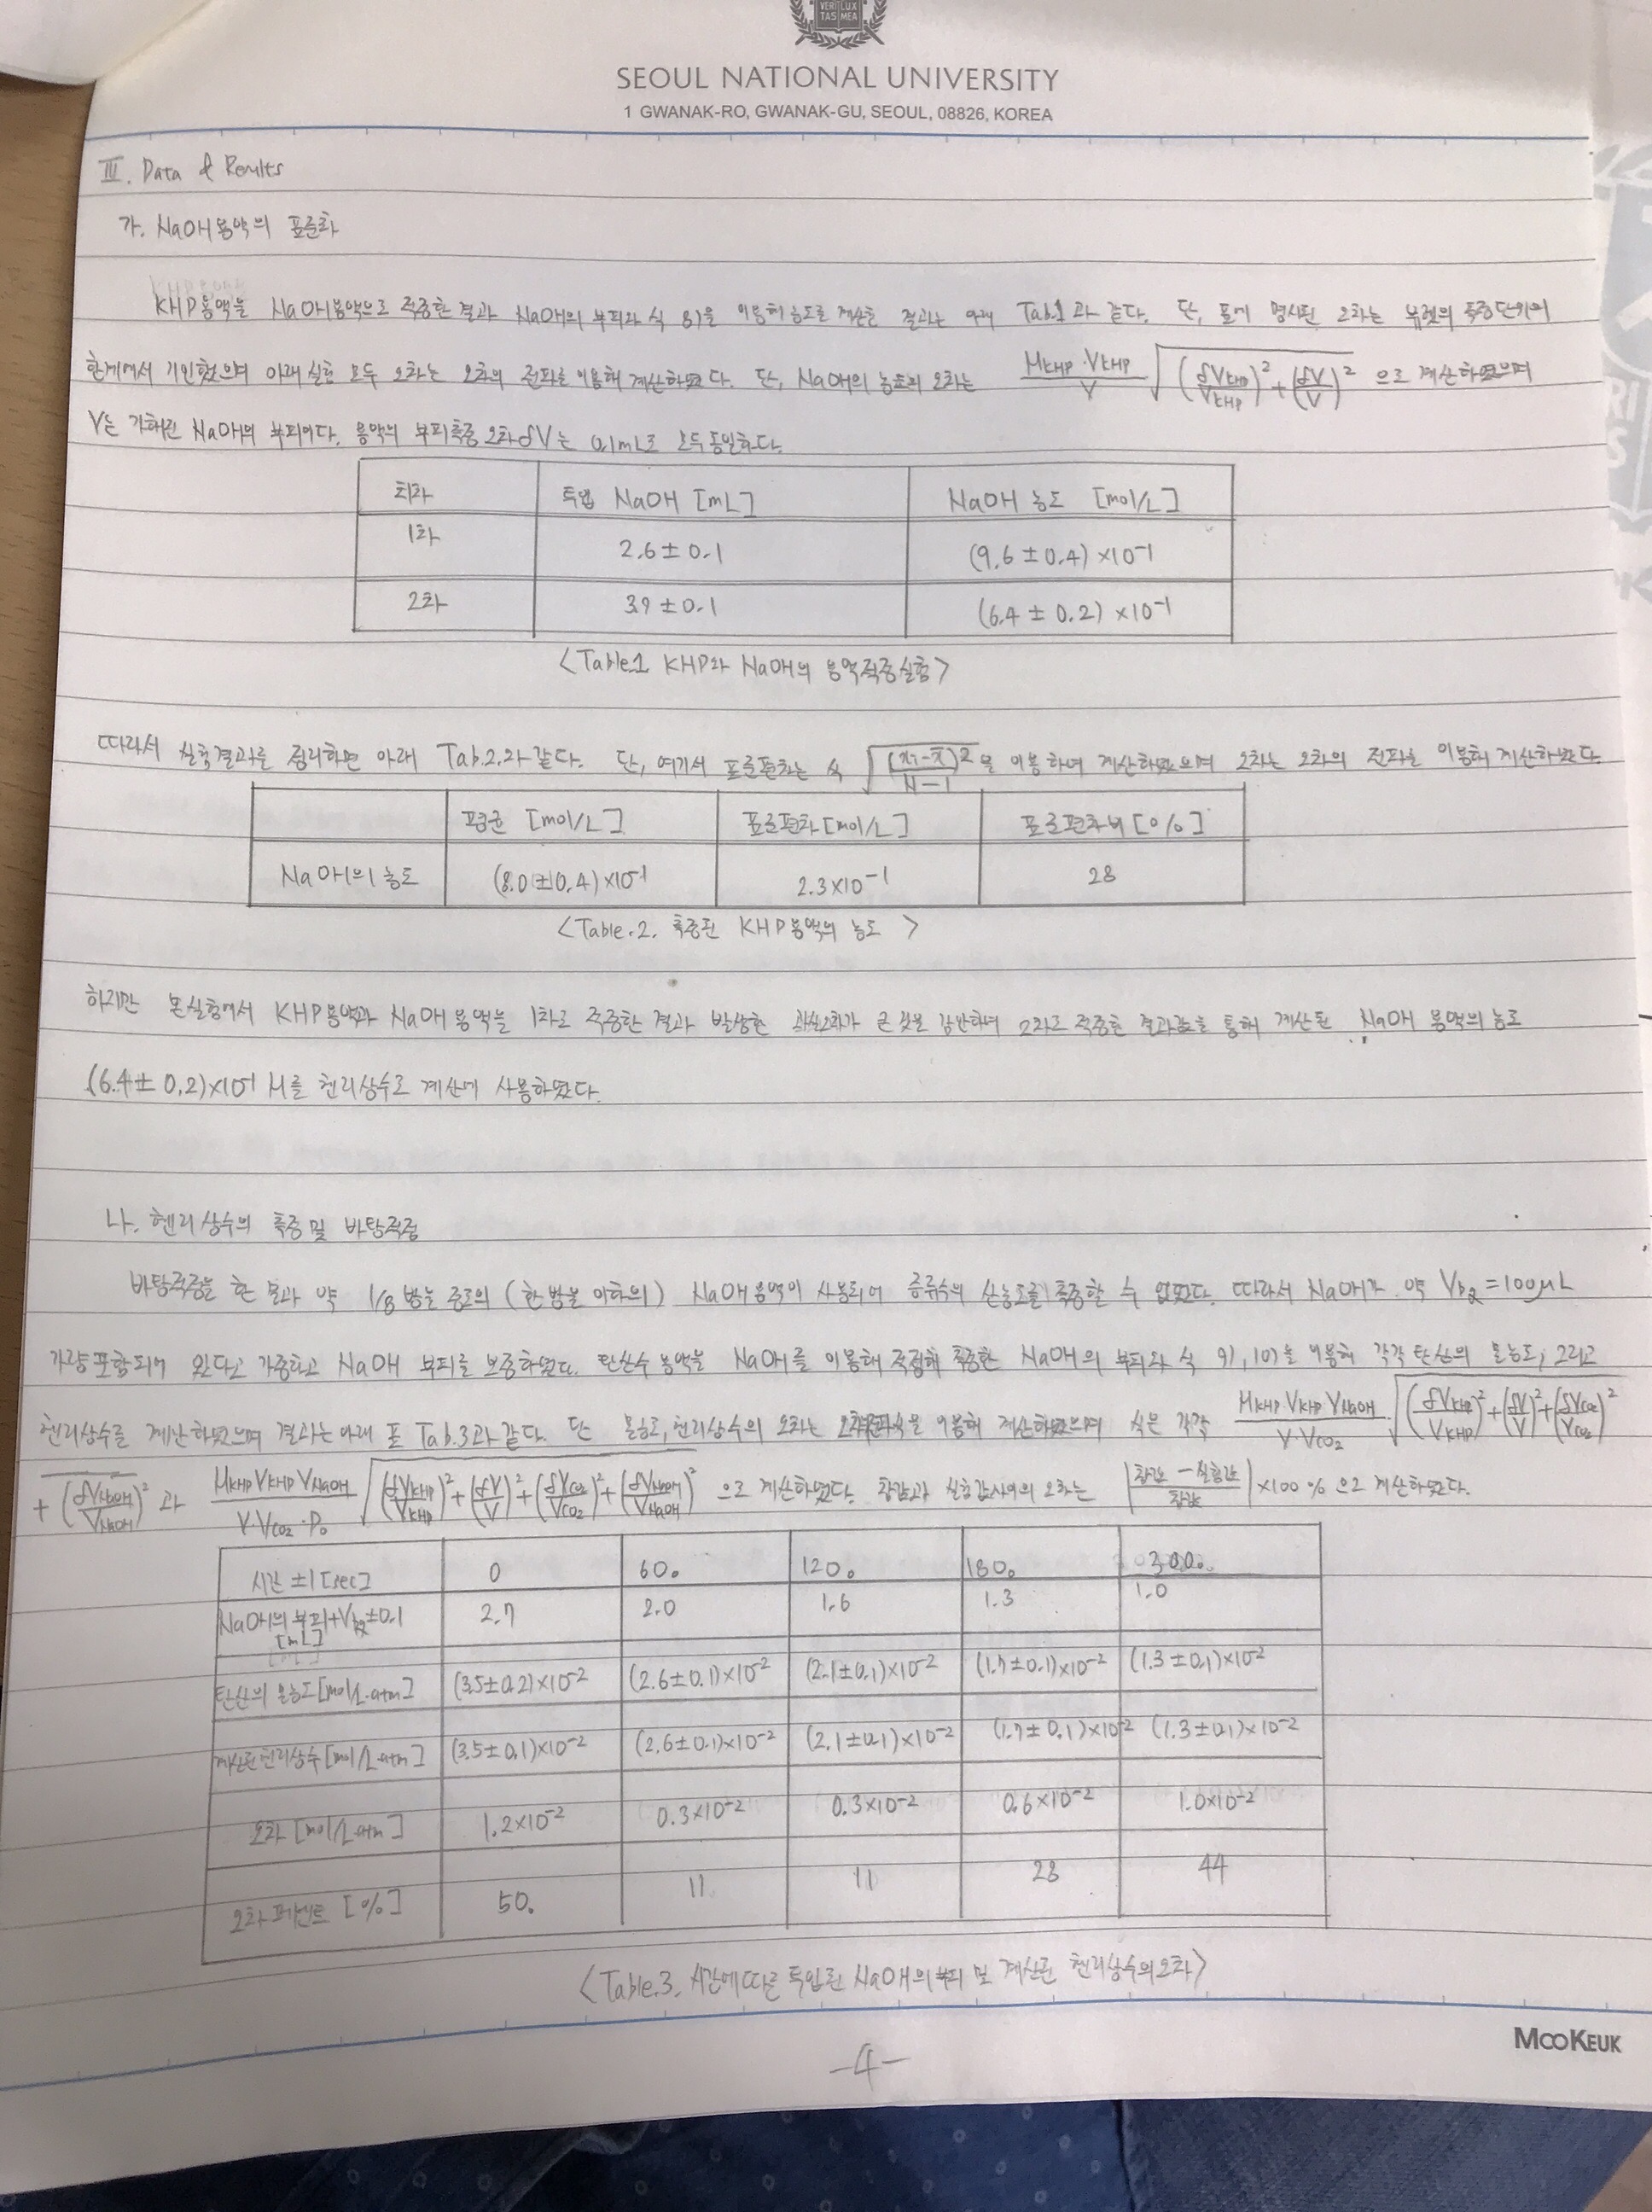 VERI LUX
TAS MEA
SEOUL NATIONAL UNIVERSITY
1 GWANAK-RO, GWANAK-GU, SEOUL, 08826, KOREA
III. Data & Results
가. NaOH용액의 표준화
KHP용액을 NaOH용액으로 적정한 결과 NaOH의 부피와 식 8)을 이용해 농도를 계산한 결과는 아래 Tab.1과 같다. 단, 표에 명시된 오차는 뷰렛의 측정단위의
한계에서 기인했으며 아래 실험 모두 오차는 오차의 전파를 이용해 계산하였다. 단, NaOH의 농도의 오차는 M_KHP·V_KHP/V √((δV_KHP/V_KHP)²+(δV/V)²) 으로 계산하였으며
V는 가해진 NaOH의 부피이다. 용액의 부피측정 오차 δV는 0.1mL로 모두 동일하다.
회차 투입 NaOH [mL] NaOH 농도 [mol/L]
1차 2.6±0.1 (9.6±0.4)×10⁻¹
2차 3.9±0.1 (6.4±0.2)×10⁻¹
<Table.1 KHP와 NaOH의 용액적정실험>
따라서 실험결과를 정리하면 아래 Tab.2.와 같다. 단, 여기서 표준편차는 식 √((xᵢ-x̄)²/N-1)을 이용하여 계산하였으며 오차는 오차의 전파를 이용해 계산하였다.
평균 [mol/L] 표준편차[mol/L] 표준편차비[%]
NaOH의 농도 (8.0±0.4)×10⁻¹ 2.3×10⁻¹ 28
<Table.2. 측정된 KHP용액의 농도>
하지만 본실험에서 KHP용액과 NaOH용액을 1차로 적정한 결과 발생한 오차가 큰 것을 감안하여 2차로 적정한 결과값을 통해 계산된 NaOH 용액의 농도
(6.4±0.2)×10⁻¹ M를 헨리상수로 계산에 사용하였다.
나. 헨리상수의 측정 및 바탕적정
바탕적정을 한 결과 약 1/8 방울 정도의 (한 방울 이하의) NaOH용액이 사용되어 증류수의 산농도를 측정할 수 없었다. 따라서 NaOH가 약 V_b2=100μL
가량 포함되어 있다고 가정하고 NaOH 부피를 보정하였다. 탄산수 용액을 NaOH를 이용해 적정해 측정한 NaOH의 부피와 식 9),10)을 이용해 각각 탄산의 몰농도, 그리고
헨리상수를 계산하였으며 결과는 아래 표 Tab.3과 같다. 단 몰농도, 헨리상수의 오차는 오차전파식을 이용해 계산하였으며 식은 각각 M_KHP V_KHP V_NaOH/V·V_CO₂ √((δV_KHP/V_KHP)²+(δV/V)²+(δV_CO₂/V_CO₂)²
+(δV_NaOH/V_NaOH)² 과 M_KHP V_KHP V_NaOH/V·V_CO₂·P₀ √((δV_KHP/V_KHP)²+(δV/V)²+(δV_CO₂/V_CO₂)²+(δV_NaOH/V_NaOH)²) 으로 계산하였다. 참값과 실험값사이의 오차는 |참값-실험값/참값|×100% 으로 계산하였다.
시간 ±1[sec] 0 60. 120. 180. 300.
NaOH의 부피+V_b2±0.1 [mL] 2.7 2.0 1.6 1.3 1.0
탄산의 몰농도[mol/L·atm] (3.5±0.2)×10⁻² (2.6±0.1)×10⁻² (2.1±0.1)×10⁻² (1.7±0.1)×10⁻² (1.3±0.1)×10⁻²
계산된 헨리상수[mol/L·atm] (3.5±0.1)×10⁻² (2.6±0.1)×10⁻² (2.1±0.1)×10⁻² (1.7±0.1)×10⁻² (1.3±0.1)×10⁻²
오차 [mol/L·atm] 1.2×10⁻² 0.3×10⁻² 0.3×10⁻² 0.6×10⁻² 1.0×10⁻²
오차퍼센트 [%] 50. 11 11 28 44
<Table.3. 시간에 따른 투입된 NaOH의 부피 및 계산된 헨리상수의 오차>
MOOKEUK
-4-